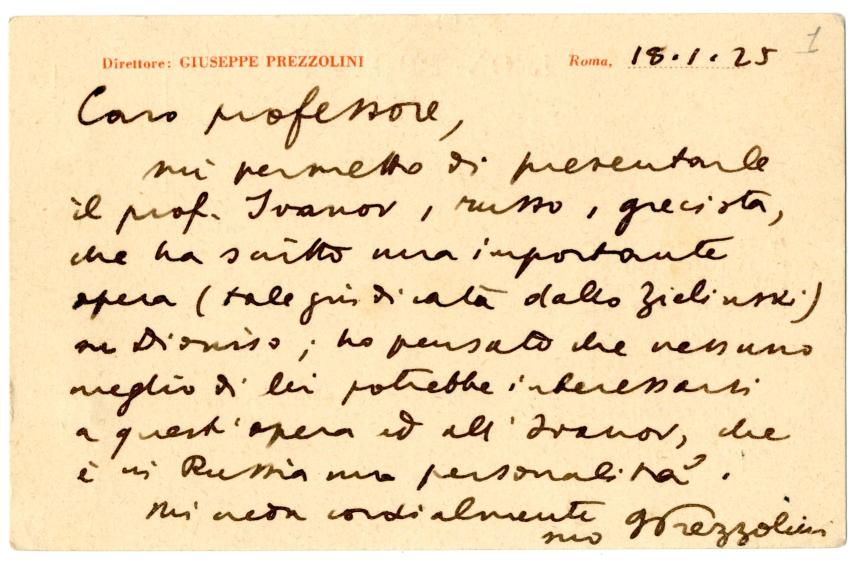 1
Direttore: GIUSEPPE PREZZOLINI Roma, 18.1.25
Caro professore,
mi permetto di presentarle
il prof. Ivanov, russo, grecista,
che ha scritto una importante
opera (tale giudicata dallo Zielinski)
su Dioniso; ho pensato che nessuno
meglio di lei potrebbe interessarsi
a quest'opera ed all'Ivanov, che
è in Russia una personalità.
Mi creda cordialmente
suo GPrezzolini